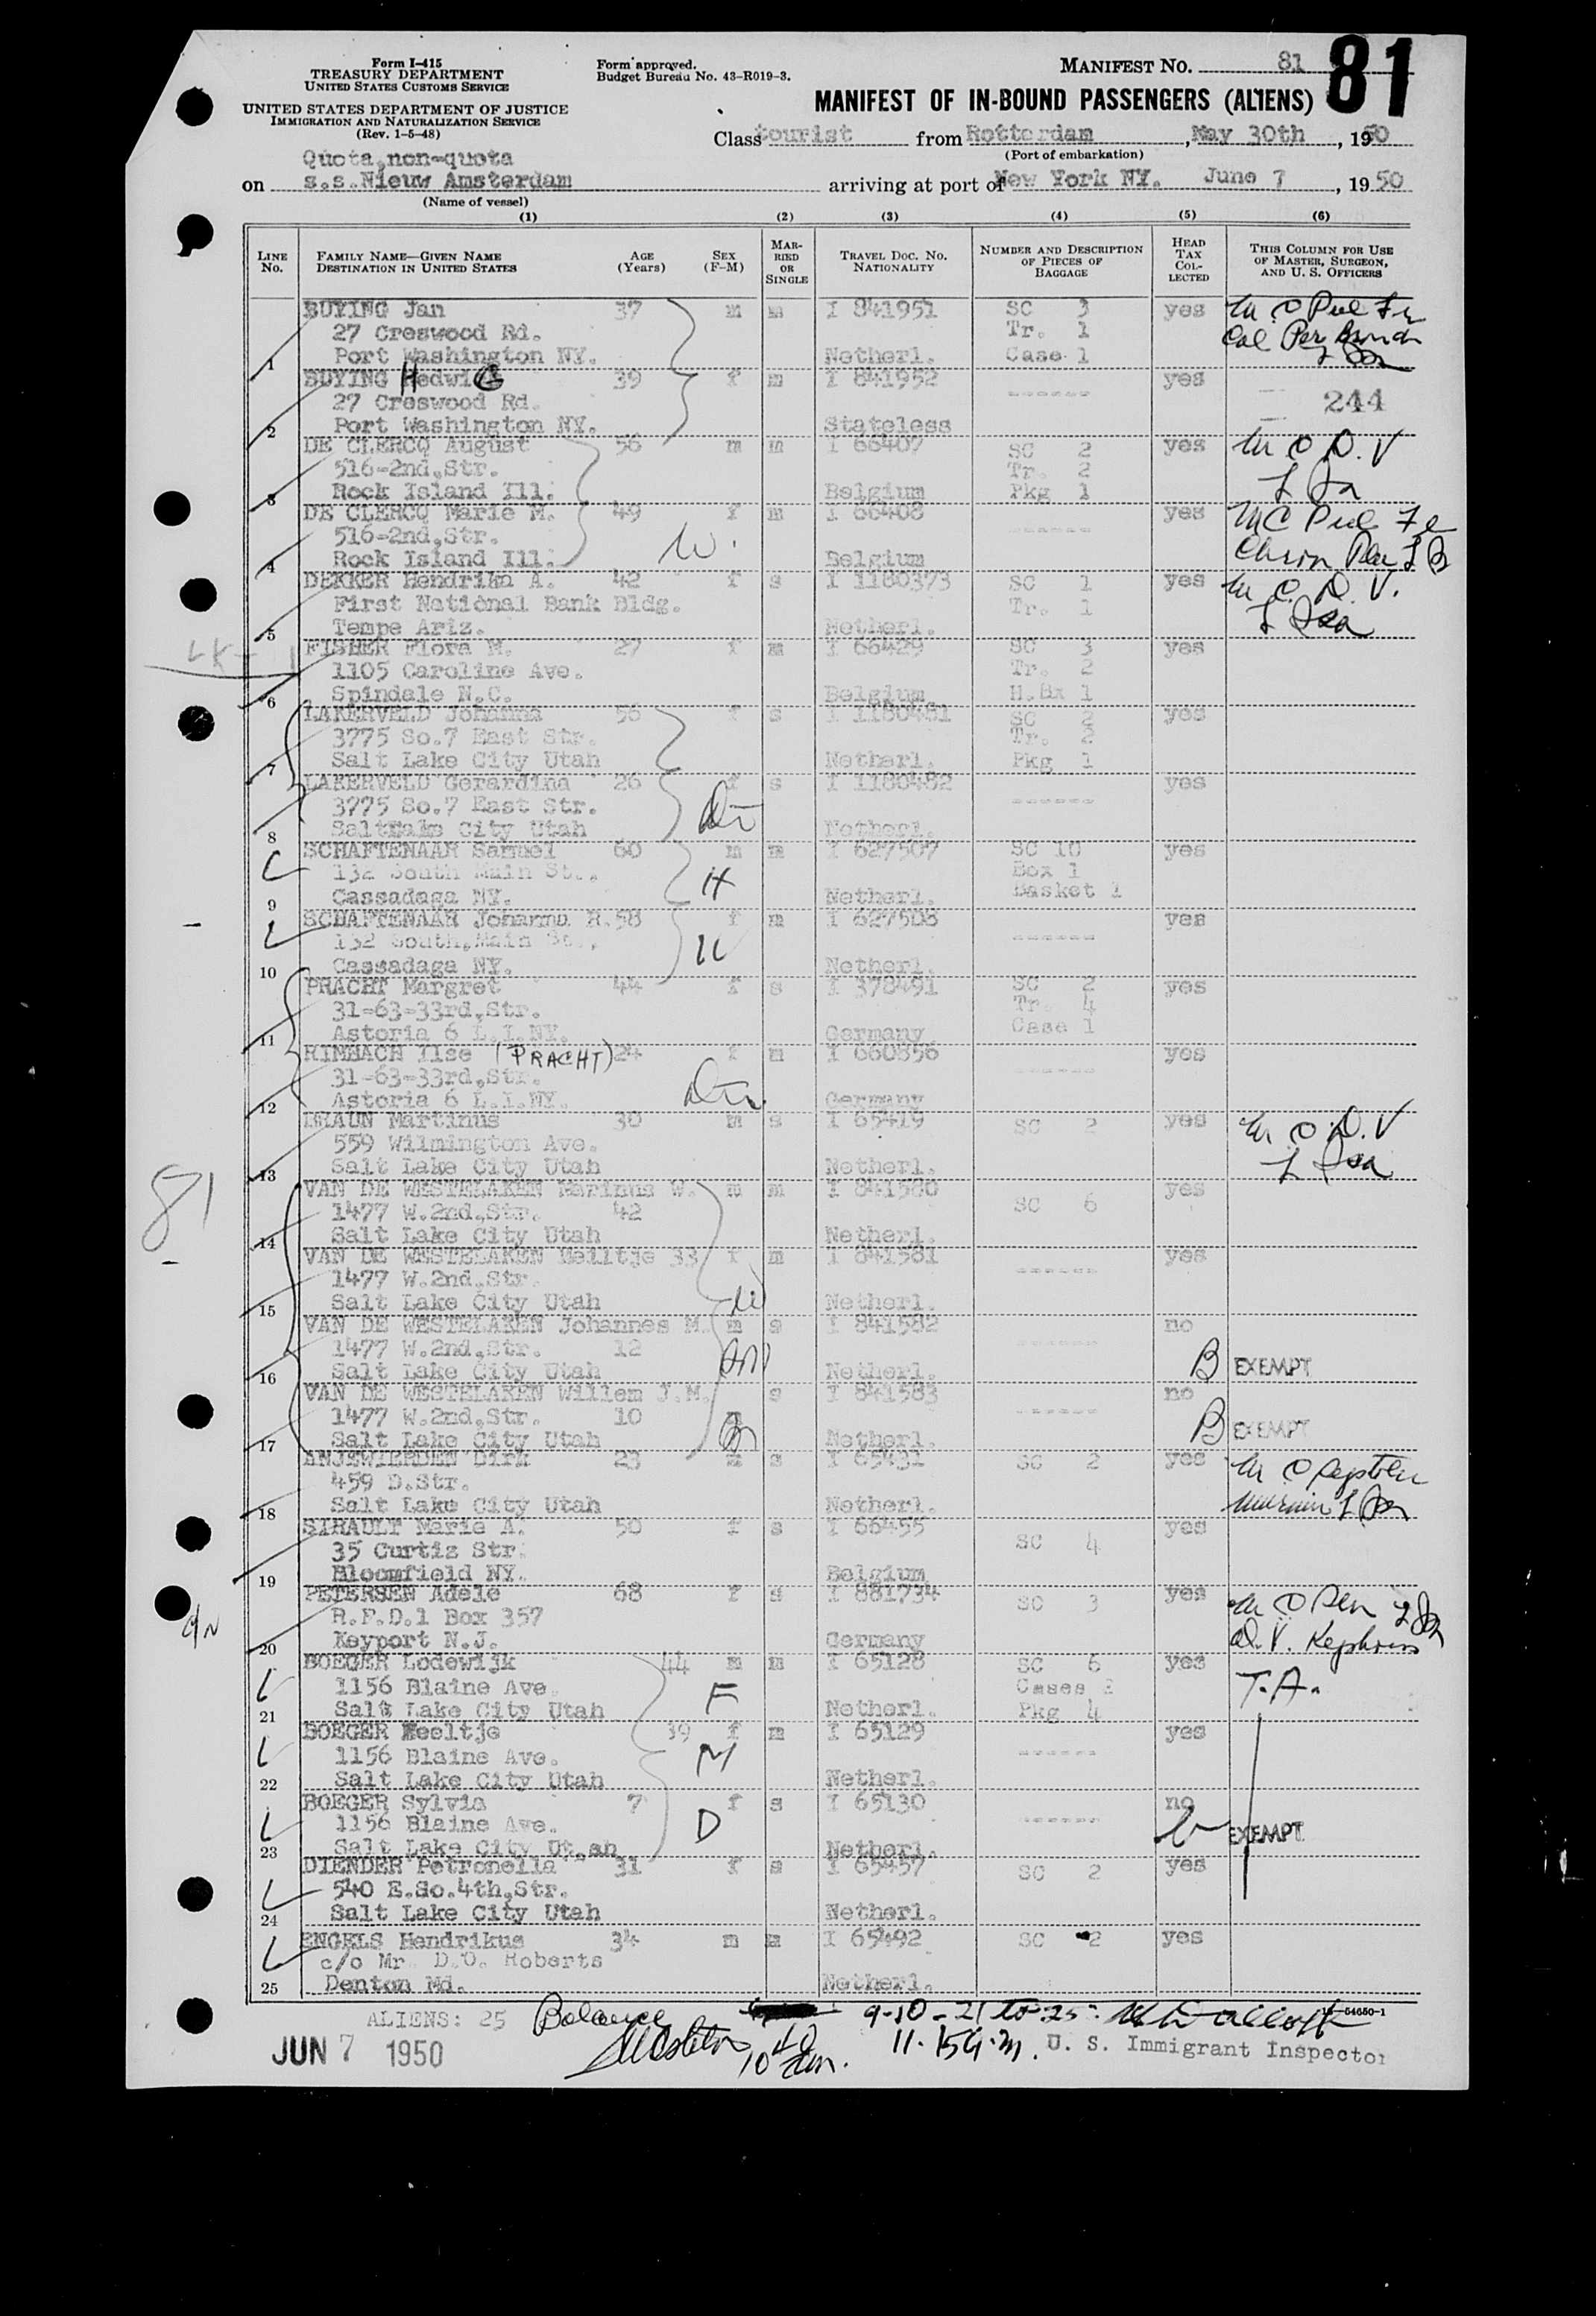 Form I-415
TREASURY DEPARTMENT
UNITED STATES CUSTOMS SERVICE
UNITED STATES DEPARTMENT OF JUSTICE
IMMIGRATION AND NATURALIZATION SERVICE
(Rev. 1-5-48)
Form approved.
Budget Bureau No. 43-R019-3.
MANIFEST NO. 81
81
MANIFEST OF IN-BOUND PASSENGERS (ALIENS)
Class tourist from Rotterdam, May 30th, 1950
(Port of embarkation)
Quota, non-quota
on s.s. Nieuw Amsterdam arriving at port of New York NY. June 7, 1950
(Name of vessel)
(1) (2) (3) (4) (5) (6)
LINE No. FAMILY NAME—GIVEN NAME DESTINATION IN UNITED STATES AGE (Years) SEX (F-M) MARRIED OR SINGLE TRAVEL DOC. NO. NATIONALITY NUMBER AND DESCRIPTION OF PIECES OF BAGGAGE HEAD TAX COLLECTED THIS COLUMN FOR USE OF MASTER, SURGEON, AND U. S. OFFICERS
BUYING Jan 37 m m I 841951 SC 3 yes
27 Creswood Rd. Tr. 1
1 Port Washington NY. Netherl. Case 1
BUYING HedwiG 39 f m I 841952 ------ yes
27 Creswood Rd. 244
2 Port Washington NY. Stateless
DE CLERCQ August 56 m m I 66407 SC 2 yes
516-2nd,Str. Tr. 2
3 Rock Island Ill. Belgium Pkg 1
DE CLERCQ Marie M. 49 f m I 66408 ------ yes
516-2nd,Str. W.
4 Rock Island Ill. Belgium
DEKKER Hendrika A. 42 f s I 1180373 SC 1 yes
First National Bank Bldg. Tr. 1
5 Tempe Ariz. Netherl.
FISHER Flora M. 27 f m I 66429 SC 3 yes
1105 Caroline Ave. Tr. 2
6 Spindale N.C. Belgium H.Bx 1
LAKERVELD Johanna 56 f s I 1180481 SC 2 yes
3775 So.7 East Str. Tr. 2
7 Salt Lake City Utah Netherl. Pkg 1
LAKERVELD Gerardina 26 f s I 1180482 ------ yes
3775 So.7 East Str.
8 Salt Lake City Utah Netherl.
SCHAFTENAAR Samuel 60 m m I 627507 SC 10 yes
132 South Main St., H Box 1
9 Cassadaga NY. Netherl. Basket 1
SCHAFTENAAR Johanna R. 58 f m I 627508 ------ yes
132 South,Main St., W
10 Cassadaga NY. Netherl.
PRACHT Margret 44 f s I 378491 SC 2 yes
31-63-33rd,Str. Tr. 4
11 Astoria 6 L.I.NY. Germany Case 1
RIMBACH Ilse (PRACHT) 24 f m I 660856 ------ yes
31-63-33rd,Str.
12 Astoria 6 L.I.NY. Germany
BRAUN Martinus 30 m s I 65419 SC 2 yes
559 Wilmington Ave.
13 Salt Lake City Utah Netherl.
81
VAN DE WESTELAKEN Marinus W. m m I 841580 SC 6 yes
1477 W.2nd.,Str. 42
14 Salt Lake City Utah Netherl.
VAN DE WESTELAKEN Meiltje 33 f m I 841581 ------ yes
1477 W.2nd,Str.
15 Salt Lake City Utah Netherl.
VAN DE WESTELAKEN Johannes M. m s I 841582 ------ no
1477 W.2nd,Str. 12
16 Salt Lake City Utah Netherl. B EXEMPT
VAN DE WESTELAKEN Willem J.M. s I 841583 ------ no
1477 W.2nd,Str. 10 m
17 Salt Lake City Utah Netherl. B EXEMPT
ANJEWIERDEN Dirk 23 m s I 65431 SC 2 yes
459 D.Str.
18 Salt Lake City Utah Netherl.
SIRAULT Marie A. 50 f s I 66455 SC 4 yes
35 Curtis Str.
19 Bloomfield NY. Belgium
PETERSEN Adele 68 f s I 881734 SC 3 yes
R.F.D.1 Box 357
20 Keyport N.J. Germany
BOEGER Lodewijk 44 m m I 65128 SC 6 yes T.A.
1156 Blaine Ave F Cases 2
21 Salt Lake City Utah Netherl. Pkg 4
BOEGER Neeltje 39 f m I 65129 ------ yes
1156 Blaine Ave. M
22 Salt Lake City Utah Netherl.
BOEGER Sylvia 7 f s I 65130 ------ no
1156 Blaine Ave. D EXEMPT
23 Salt Lake City Ut.ah Netherl.
DIENDER Petronella 31 f s I 65457 SC 2 yes
540 E.So.4th,Str.
24 Salt Lake City Utah Netherl.
ENGELS Hendrikus 34 m m I 65492 SC 2 yes
c/o Mr. D.O. Roberts
25 Denton Md. Netherl.
16-54650-1
ALIENS: 25 Balance 9-10-21 to 25:
JUN 7 1950 10 40 am. 11.15 a.m. U. S. Immigrant Inspector